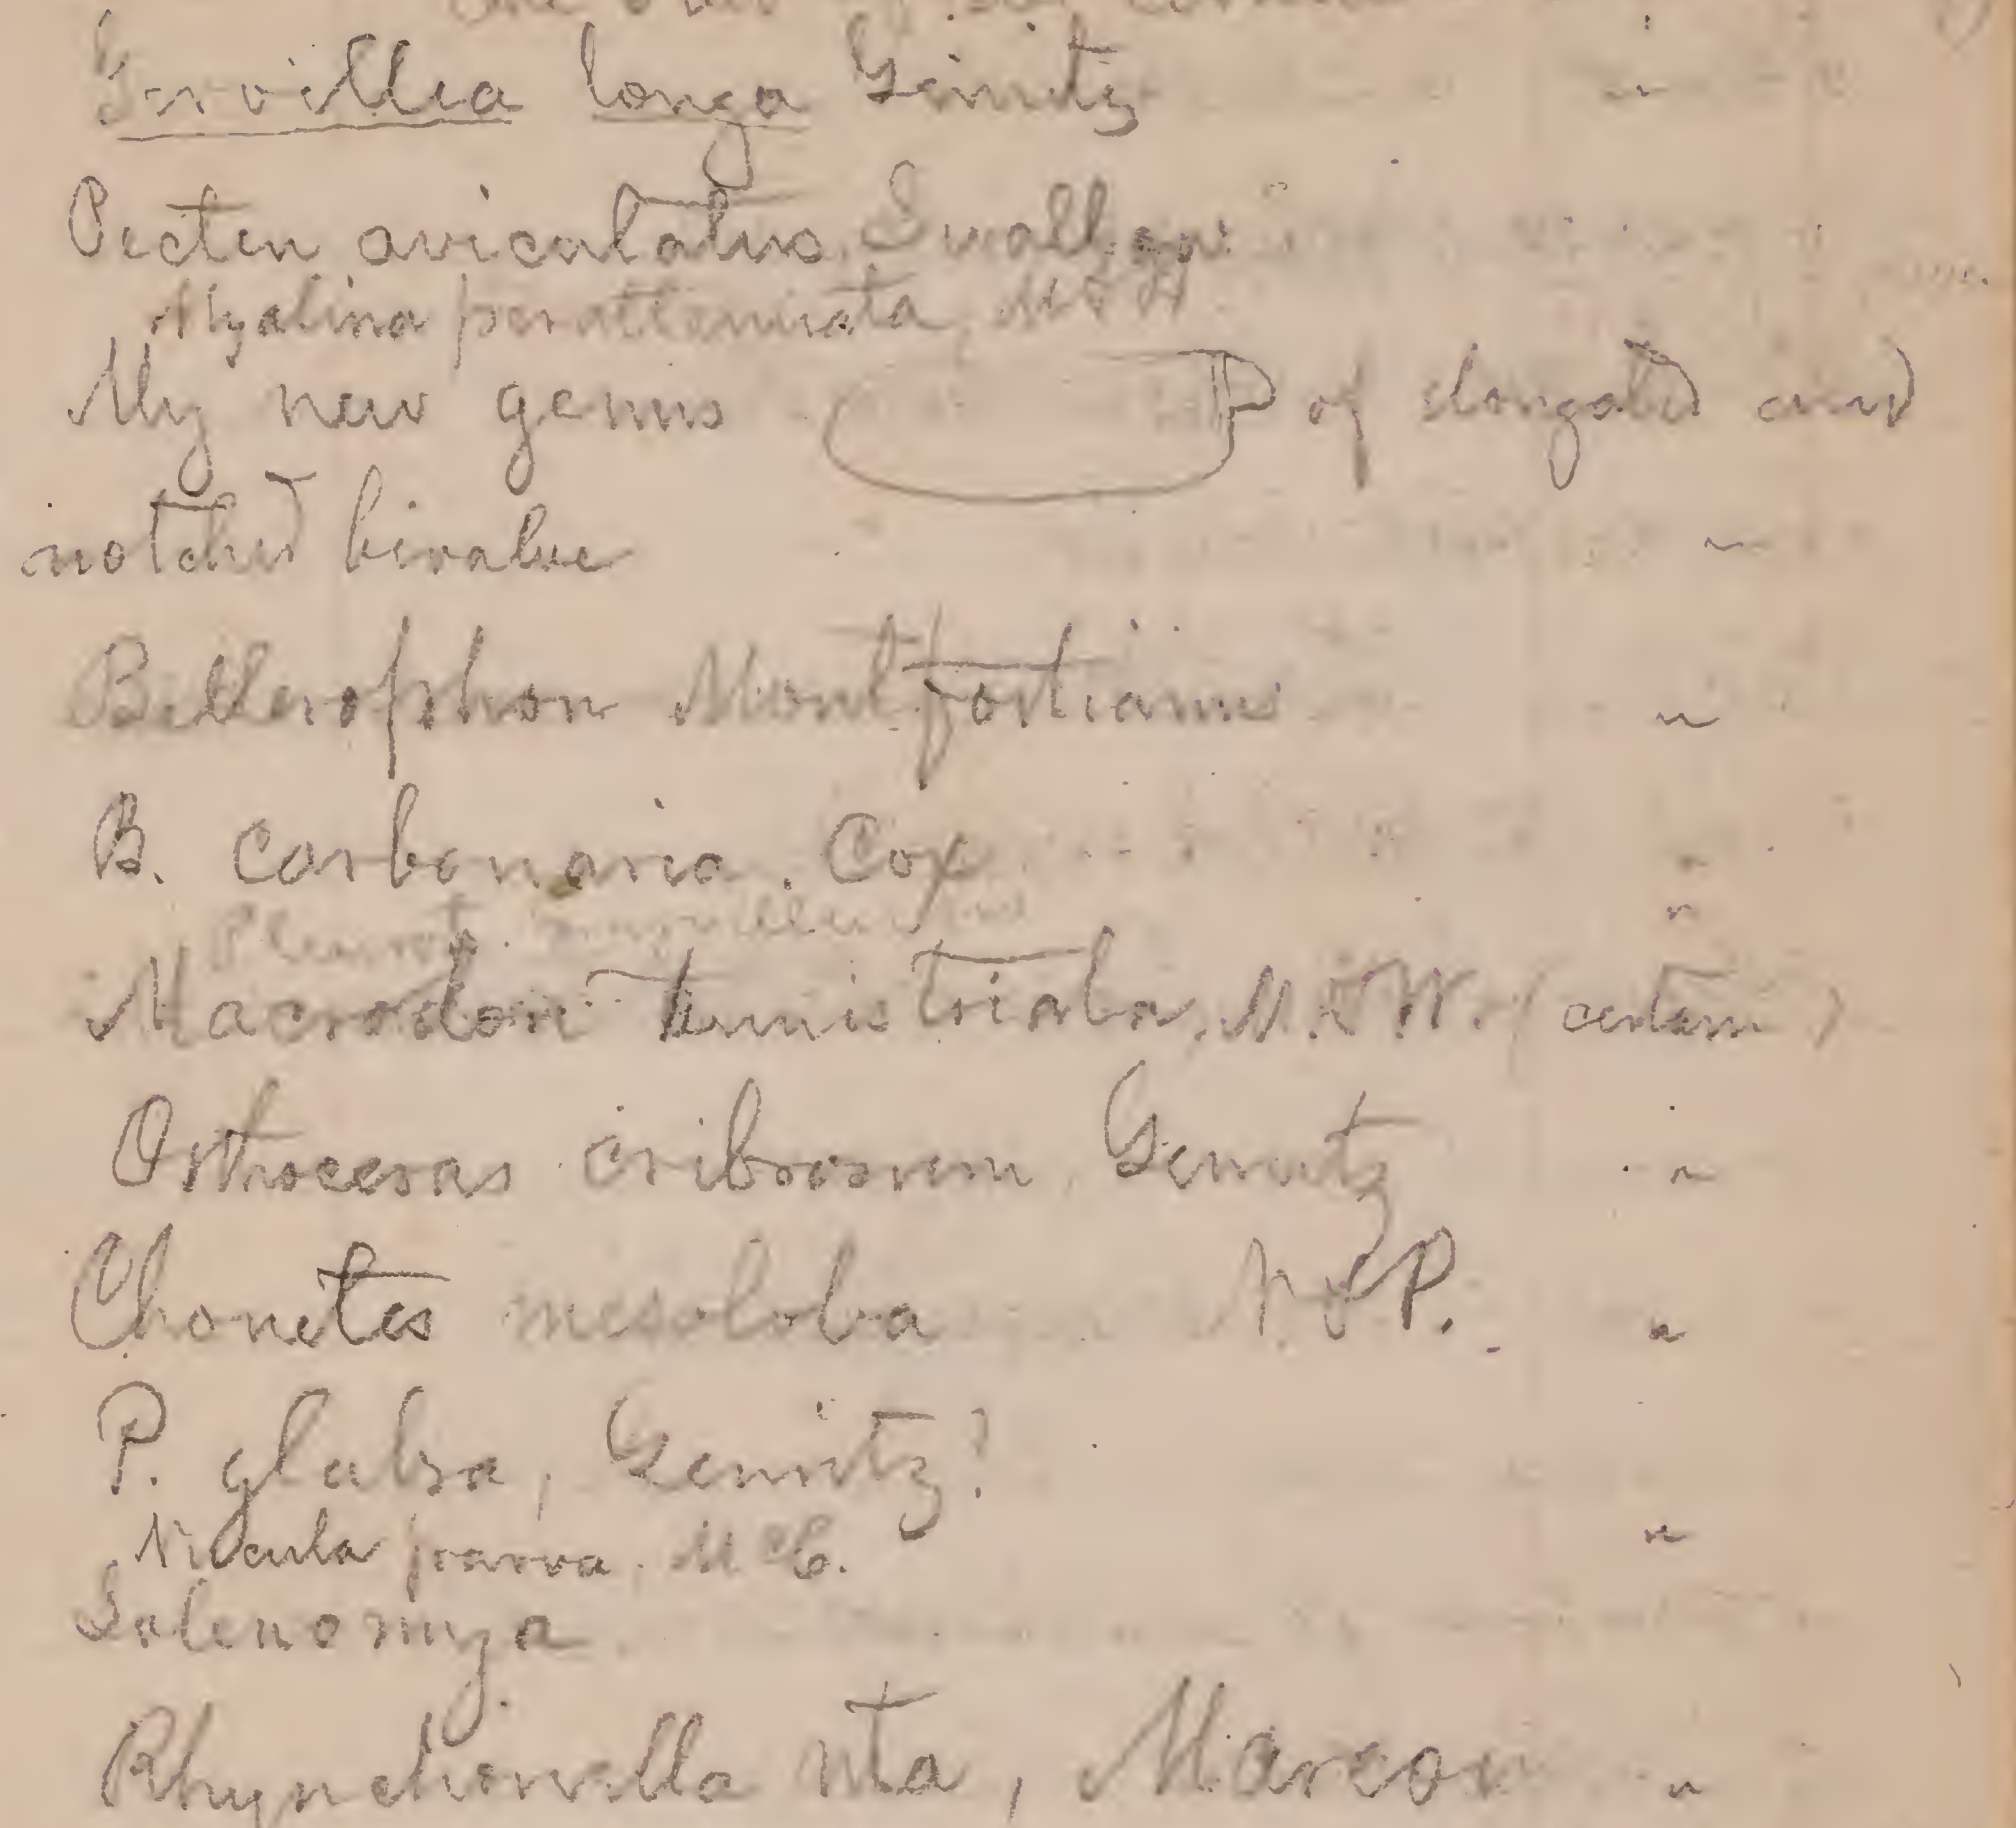 Gervillia longa Geinitz "
Pecten aviculatus, Swallow
Myalina perattenuata, M & H
My new genus of elongated and
notched bivalve "
Bellerophon Montfortianus "
B. Carbonaria. Cox "
Pleurot. "
Macrodon tenuistriata, M. & W. (certain)
Orthoceras cribrosum, Geinitz "
Chonetes mesoloba N & P. "
P. glabra, Geinitz?
Nucula parva. McC. "
Solenomya
Rhynchonella uta, Marcou "